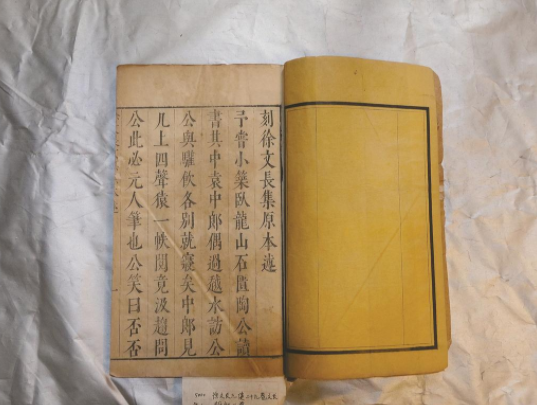 刻徐文長集原本述
予嘗小築臥龍山石匱陶公讀
書其中袁中郎偶過越水訪公
公與驩飲各別就寢矣中郎見
几上四聲猿一帙閱竟汲趨問
公此必元人筆也公笑曰否否